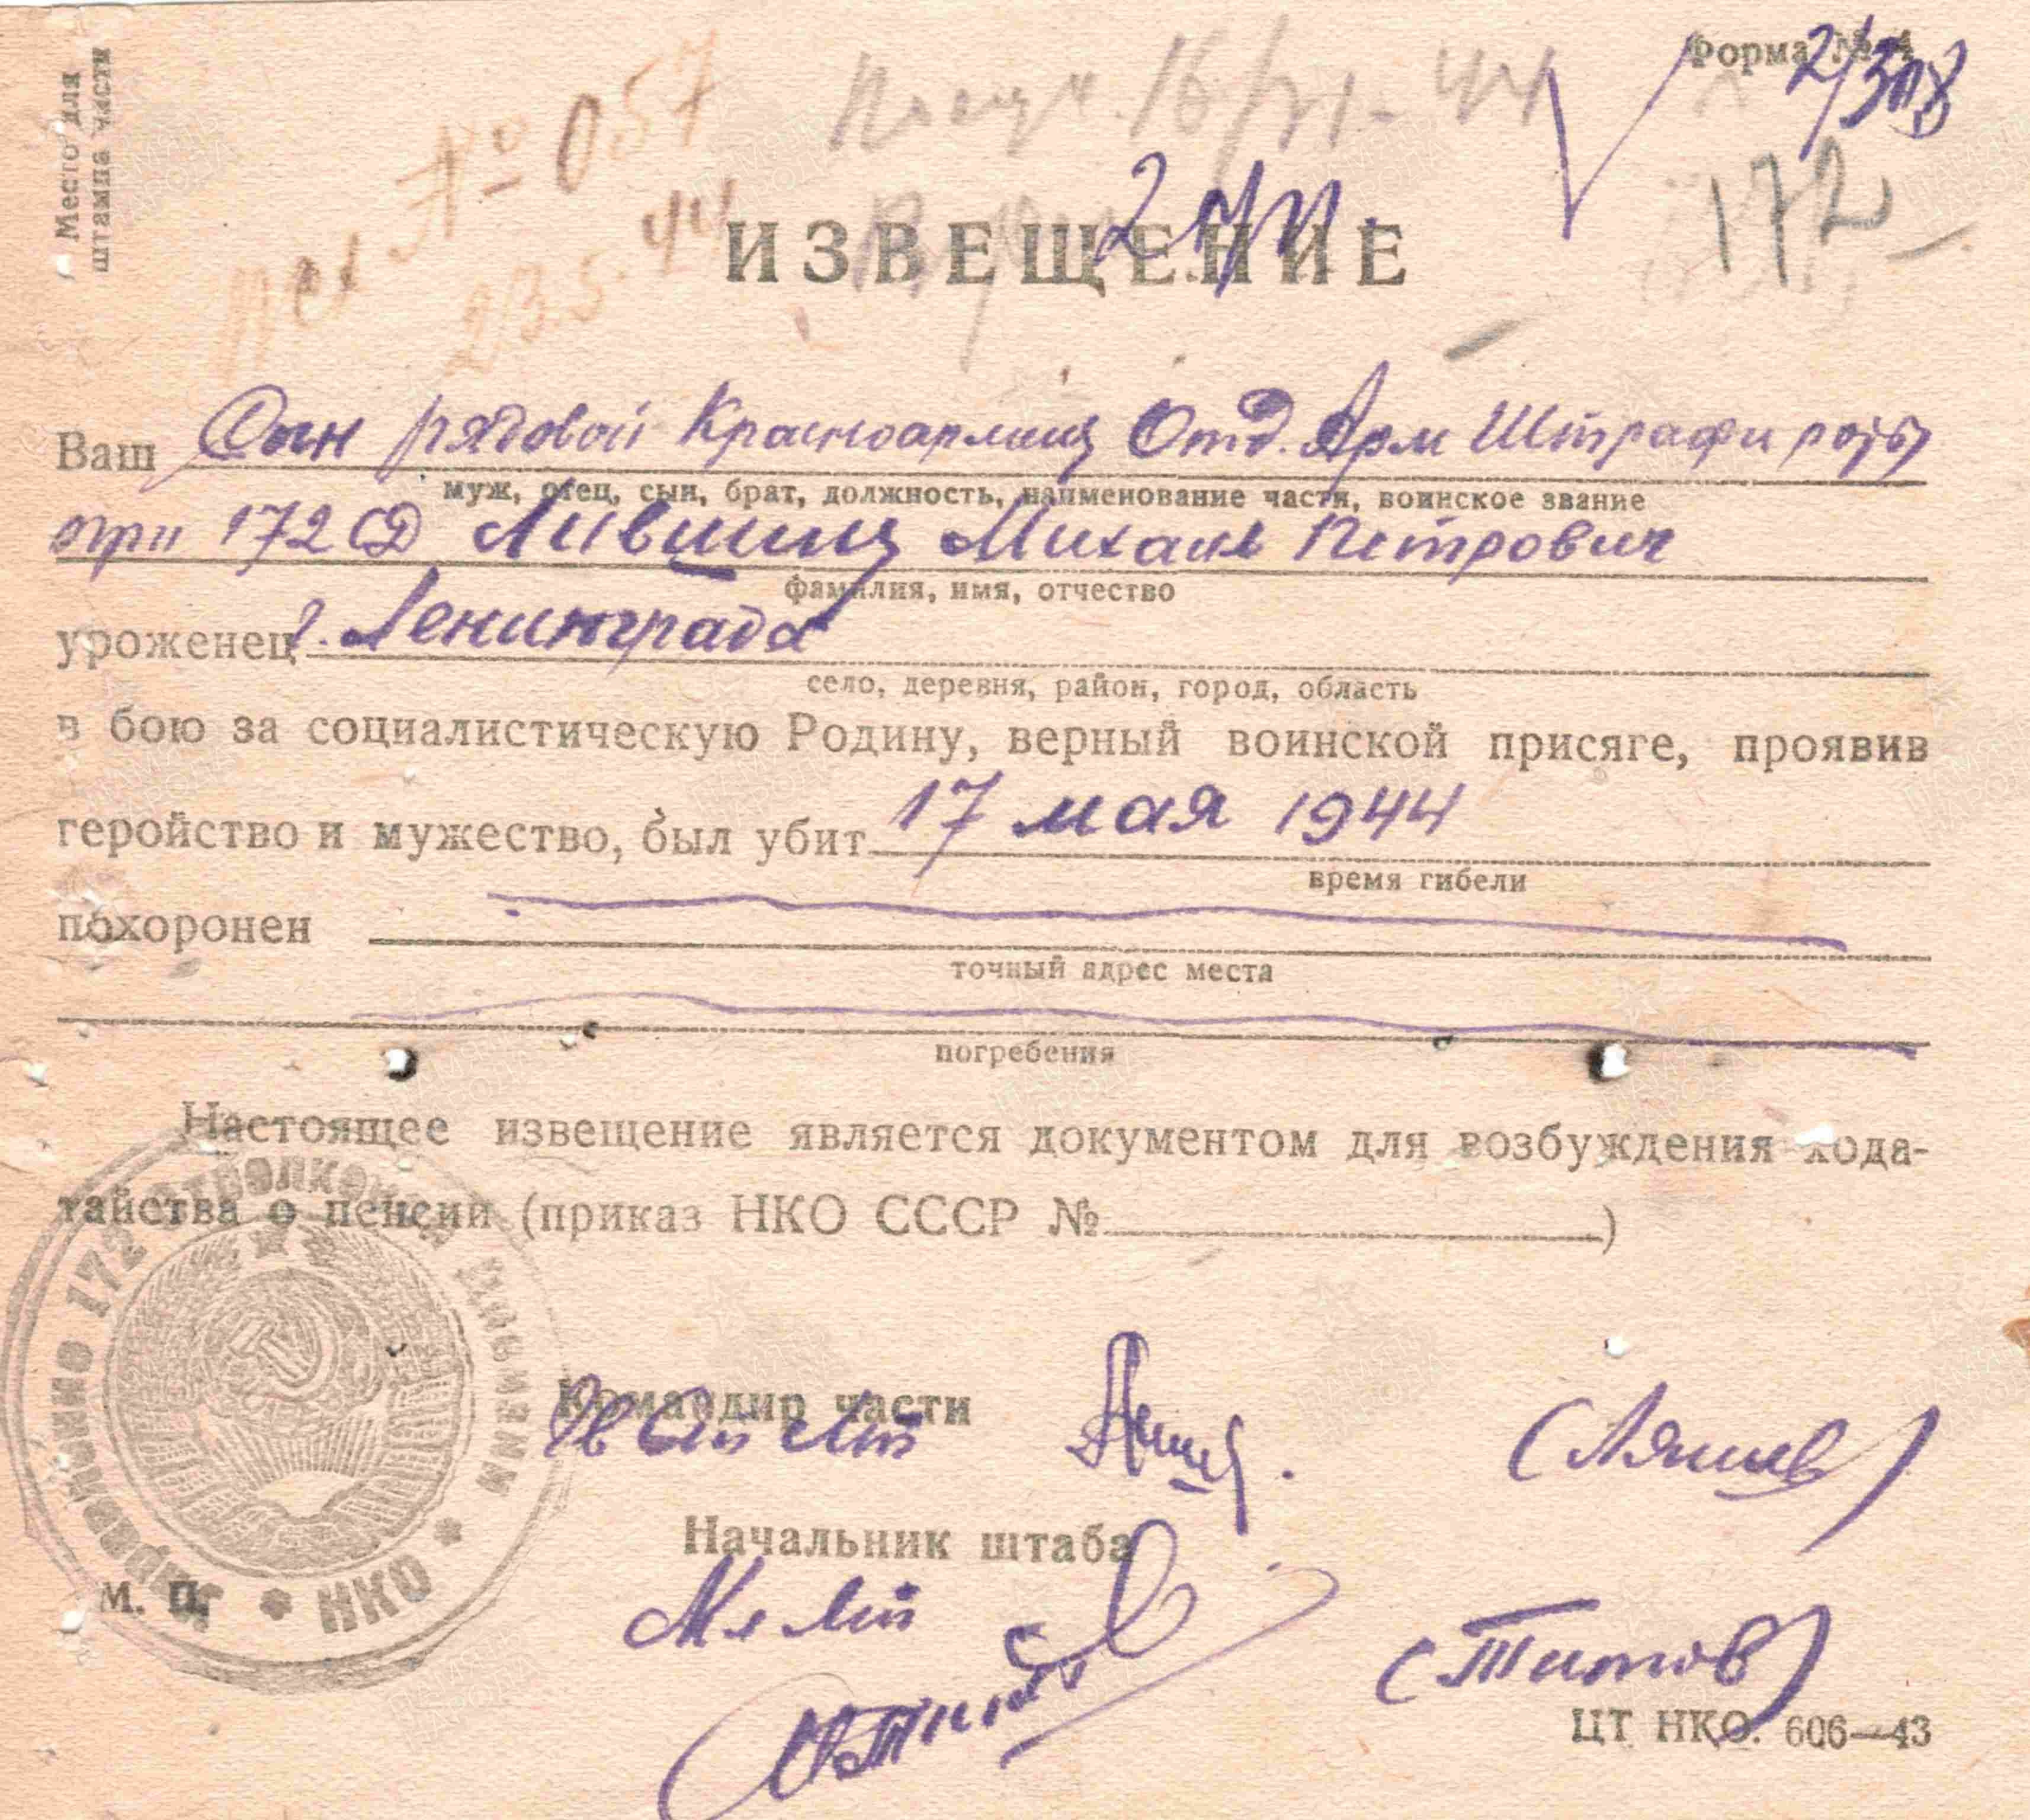 Место для
штампа части
Форма № 4
2/308
№ 057
Посуп. 16/VI-44
172
23.5.44
ИЗВЕЩЕНИЕ
Ваш Сын рядовой Красноармеец Отд. Арм Штрафн роты
муж, отец, сын, брат, должность, наименование части, воинское звание
при 172 СД Лившиц Михаил Петрович
фамилия, имя, отчество
уроженец г. Ленинграда
село, деревня, район, город, область
в бою за социалистическую Родину, верный воинской присяге, проявив
геройство и мужество, был убит 17 мая 1944
время гибели
похоронен
точный адрес места
погребения
Настоящее извещение является документом для возбуждения хода-
тайства о пенсии (приказ НКО СССР №)
Управление 172 стрелковой дивизии * НКО *
Командир части
Гв Ст Лт (Ляшев)
Начальник штаба
Мл Лт (Титов)
М. П.
ЦТ НКО. 606—43